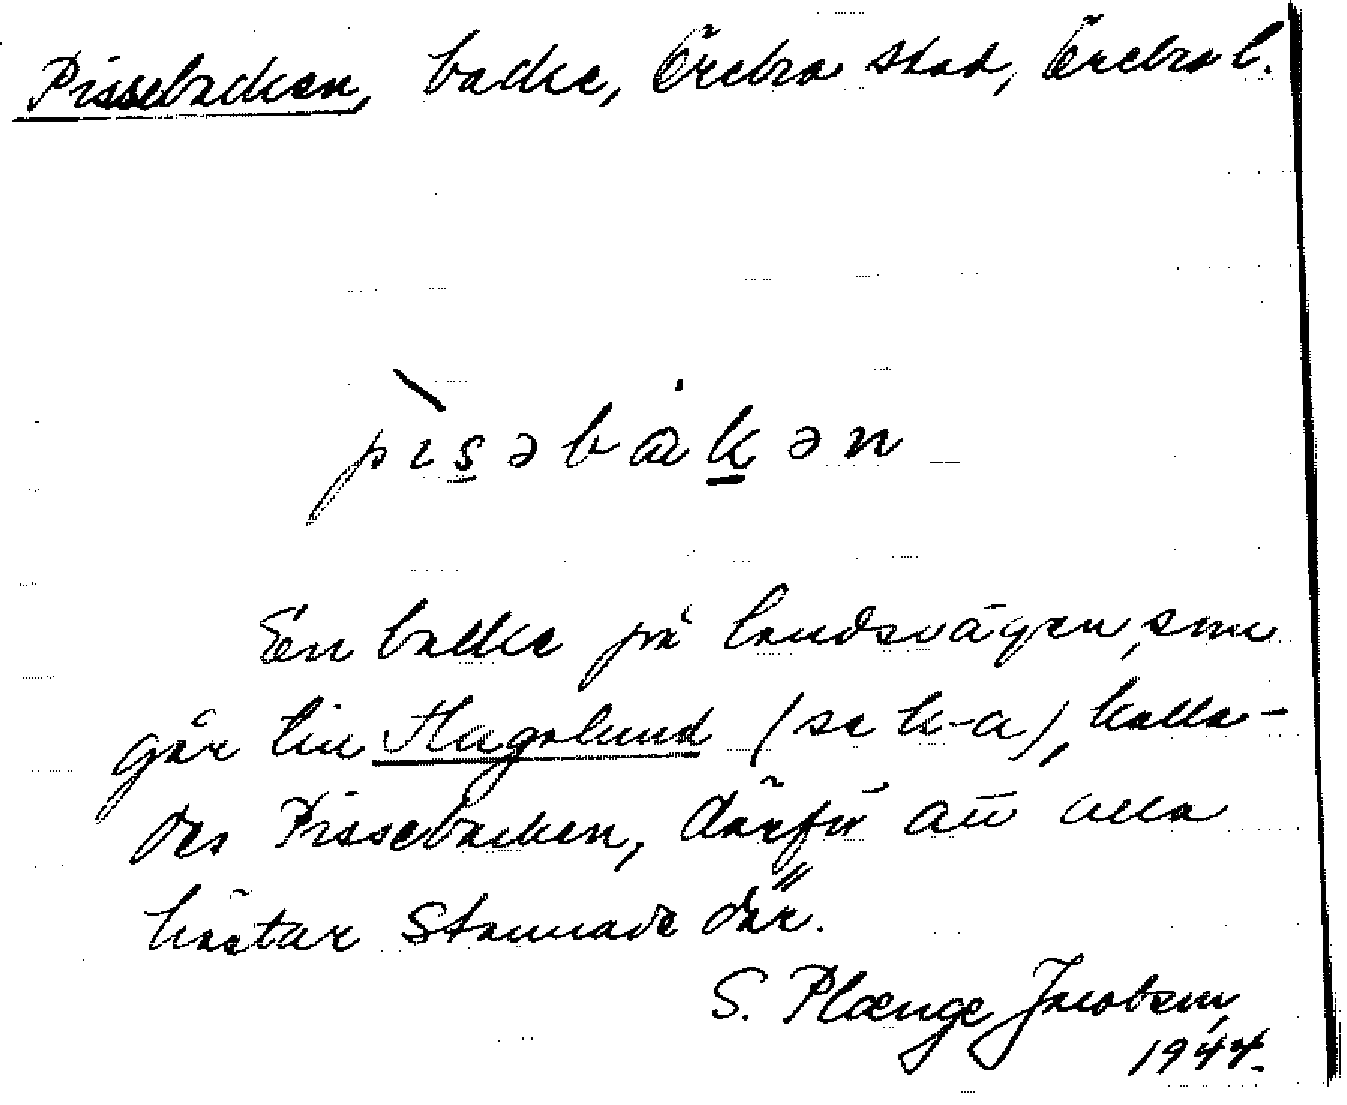 Pissebacken, backe, Örebro stad, Örebro l.
pɩsəbakən
En backe på landsvägen, som
går till Hagalund (se k-a), kalla-
des Pissebacken, därför att alla
hästar stannade där.
S. Plænge Jacobson
1944.